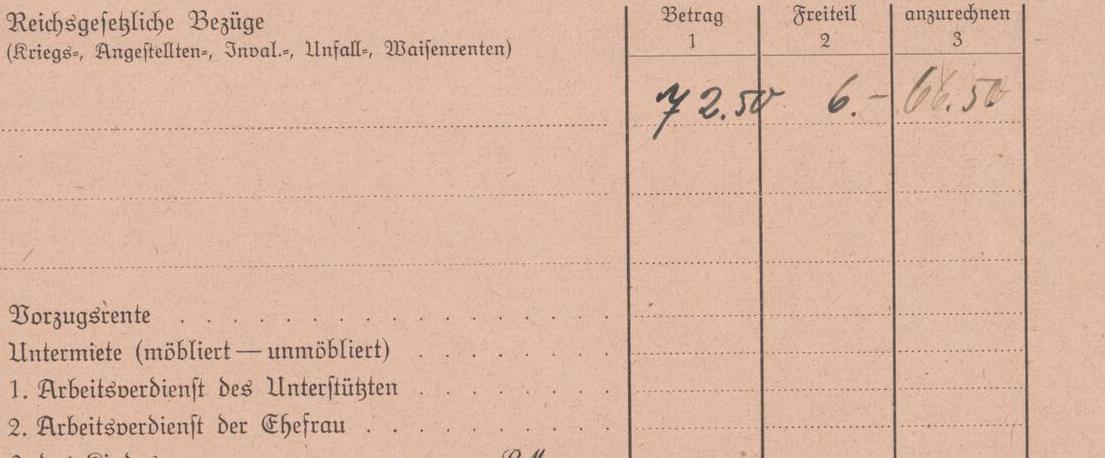 Reichsgesetzliche Bezüge
(Kriegs-, Angestellten-, Inval.-, Unfall-, Waisenrenten)
Betrag Freiteil anzurechnen
1 2 3
72.50 6.- 66.50
Vorzugsrente . . . . . . . . . . . . . . . .
Untermiete (möbliert — unmöbliert) . . . . . . .
1. Arbeitsverdienst des Unterstützten . . . . . . .
2. Arbeitsverdienst der Ehefrau . . . . . . . . .